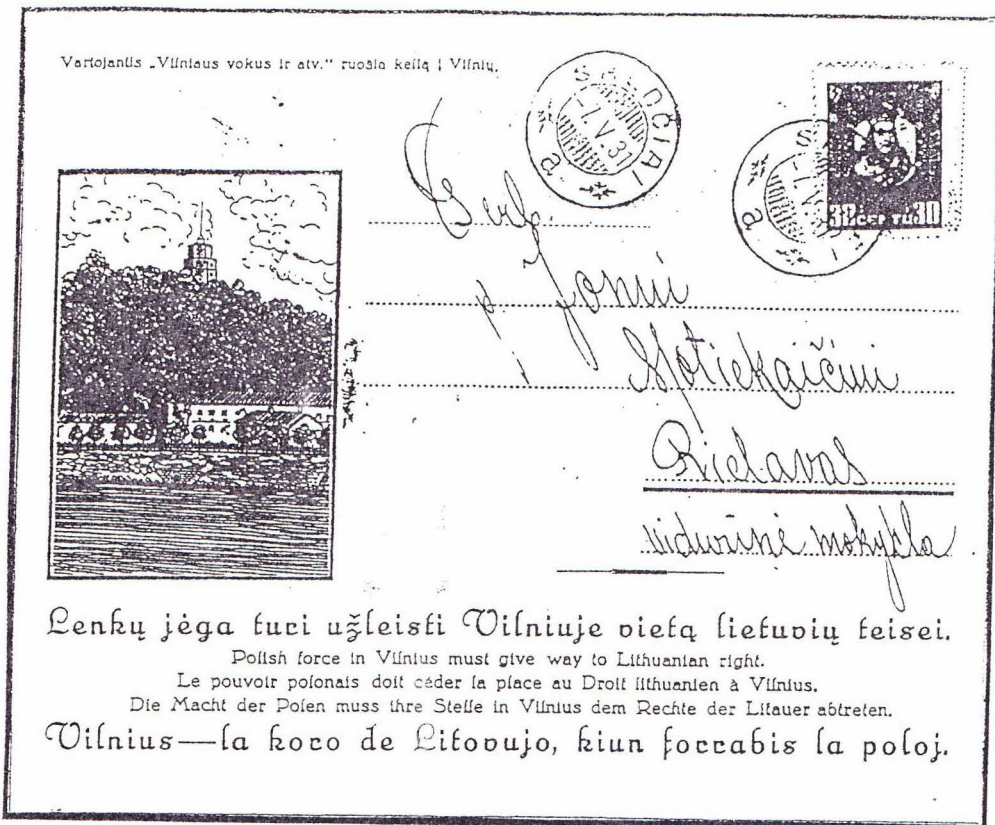 Vartojantis „Vilniaus vokus ir atv.“ ruošia kelią į Vilnių.
SALOČIAI
-7.V.37
a
a
30 CENTŲ 30
Gerb.
p. Jonui
Motiekaičiui
Rietavas
vidurinė mokykla
Lenkų jėga turi užleisti Vilniuje vietą lietuvių teisei.
Polish force in Vilnius must give way to Lithuanian right.
Le pouvoir polonais doit céder la place au Droit lithuanien à Vilnius.
Die Macht der Polen muss ihre Stelle in Vilnius dem Rechte der Litauer abtreten.
Vilnius—la koro de Litovujo, kiun forrabis la poloj.